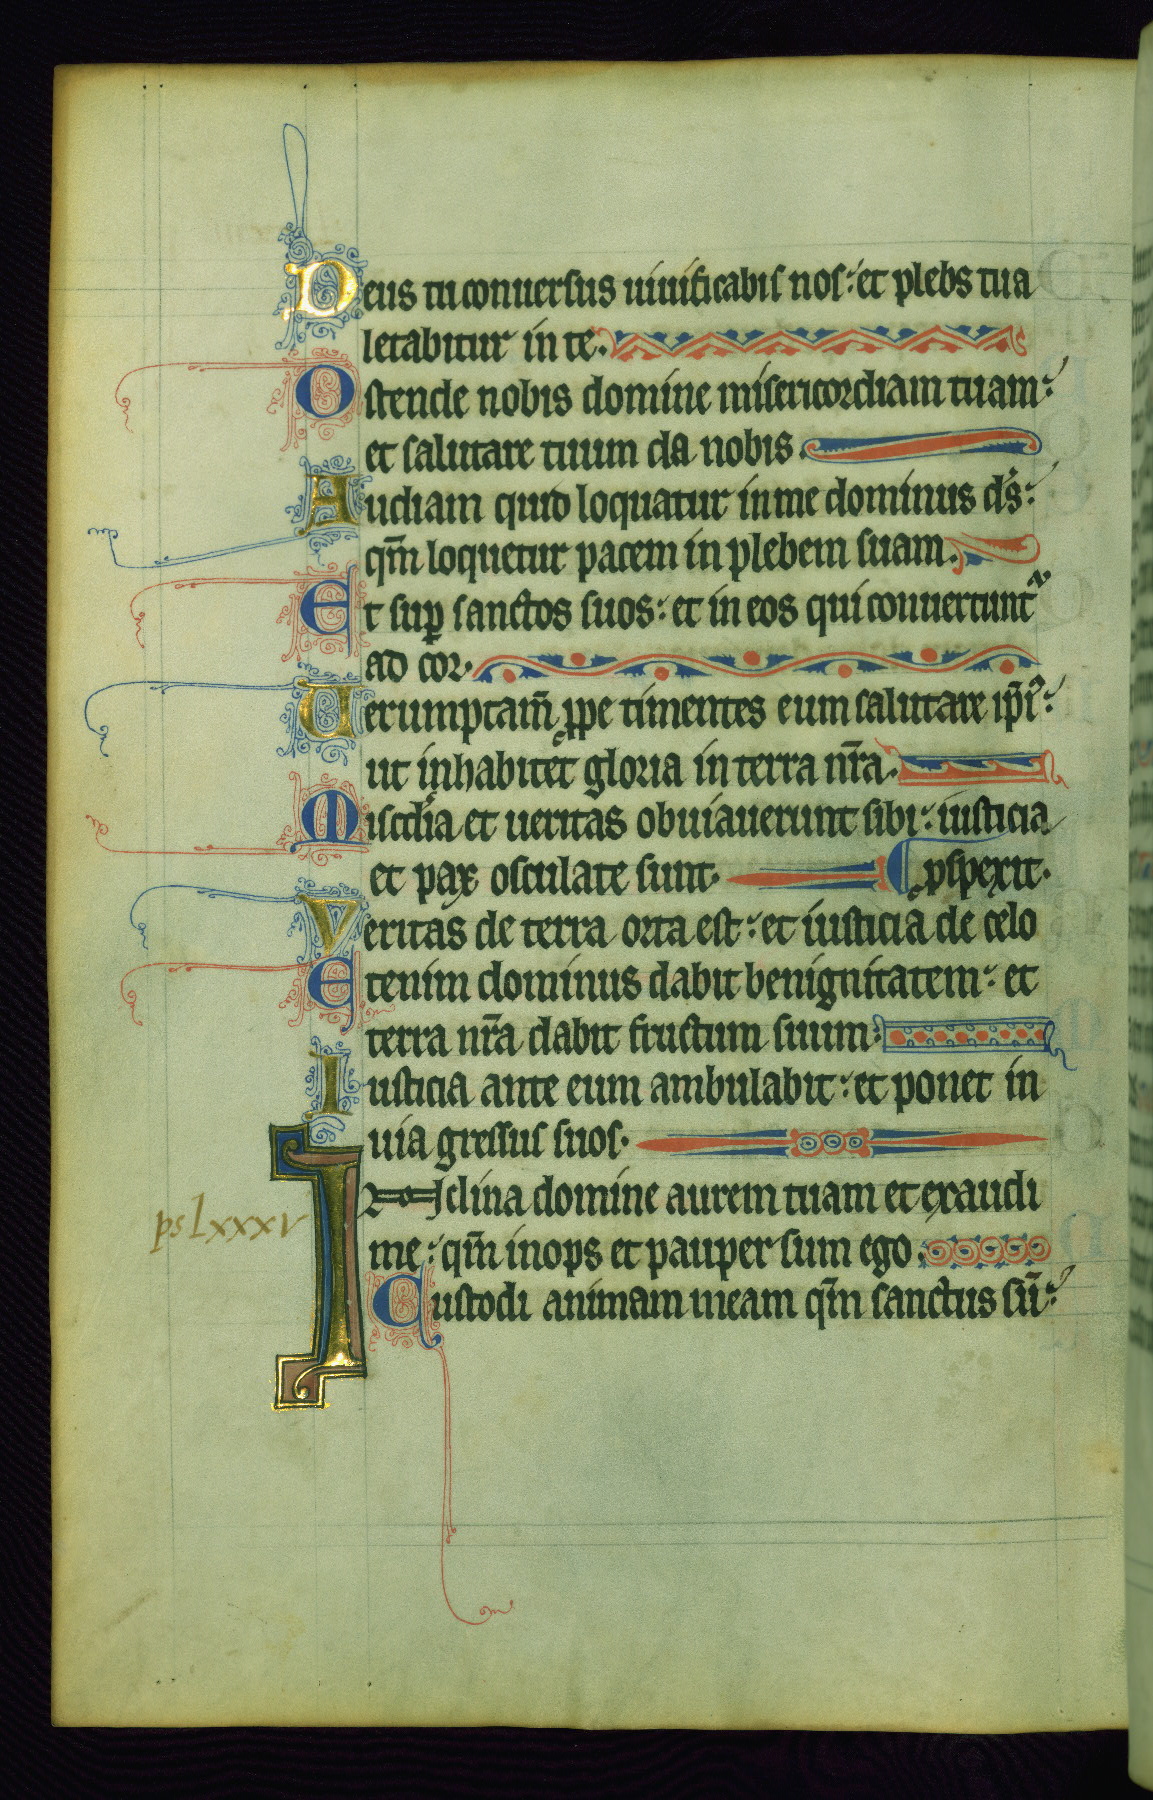 Deus tu conuersus uiuificabis nos: et plebs tua
letabitur in te.
Ostende nobis domine misericordiam tuam:
et salutare tuum da nobis.
Audiam quid loquatur in me dominus ds̄:
qm̄ loquetur pacem in plebem suam.
Et suꝑ sanctos suos: et in eos qui conuertunt᷑
ad cor.
Uerumptam̄ ꝓpe timentes eum salutare ip̄i᷒:
ut inhabitet gloria in terra nr̄a.
Miscd̄ia et ueritas obuiauerunt sibi: iusticia
et pax osculate sunt. ꝓspexit.
Veritas de terra orta est: et iusticia de celo
Etenim dominus dabit benignitatem: et
terra nr̄a dabit fructum suum:
Iusticia ante eum ambulabit: et ponet in
uia gressus suos.
Inclina domine aurem tuam et exaudi
ps lxxxv
me: qm̄ inops et pauper sum ego.
Custodi animam meam qm̄ sanctus sū: